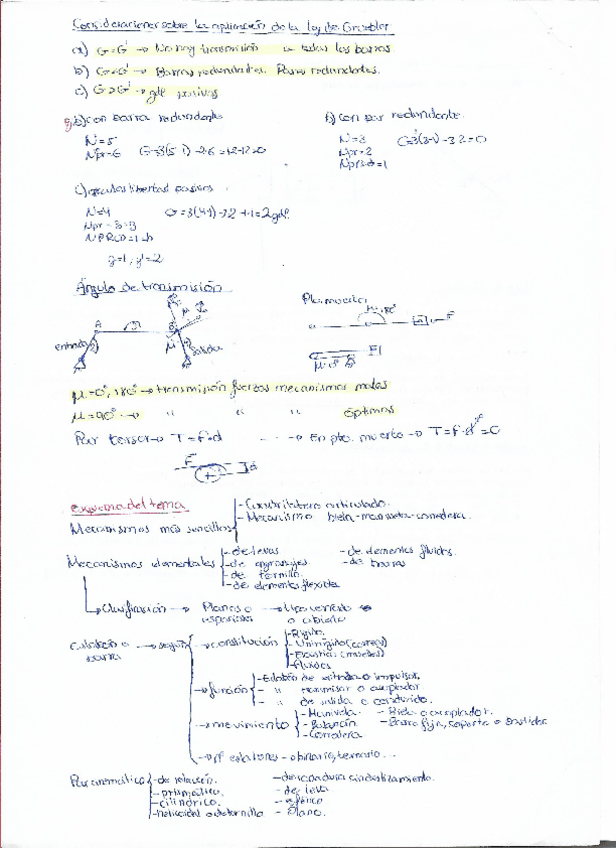 Consideraciones sobre la aplicación de la ley de Grübler
a) G=G' → No hay transmisión a todas las barras
b) G<G' → Barras redundantes. Pares redundantes.
c) G>G' → gdl pasivos
b) con barra redundante
N=5
Npr=6 G=3(5-1)-2·6=12-12=0
b) con par redundante.
N=3
Npr=2
G=3(3-1)-3·2=0
c) grados libertad pasivos.
N=4 G=3(4-1)-3·2+1=2gdl.
g=1, g'=2
Ángulo de transmisión
A B
entrada salida
μ
Pto. muerto
μ=180°
F
μ=0°
μ=0°, 180° → transmisión fuerzas mecanismos malas
μ=90° → " " " óptimas
Par torsor → T=F·d → En pto. muerto → T=F·d=0
F d
esquema del tema
Mecanismos más sencillos
- Cuadrilátero articulado.
- Mecanismo biela-manivela-corredera.
Mecanismos elementales
- de levas - de elementos fluidos.
- de engranajes. - de barras
- de tornillo.
- de elementos flexible
→ Clasificación → Planos o espaciales → lazo cerrado o abierto
Eslabón o barra → según
→ constitución
- Rígido.
- Unirrígido (correas)
- Elásticos (muelles)
- Fluidos
→ función
- Eslabón de entrada o impulsor.
- " transmisor o acoplador
- " de salida o conducido.
→ movimiento
- Manivela. - Biela o acoplador.
- Balancín - Barra fija, soporte o bastidor
- Corredera
→ nº eslabones - binario, ternario...
Par cinemático
- de rotación. - de rodadura sin deslizamiento.
- prismático. - de leva
- cilíndrico. - esférico
- helicoidal o de tornillo - Plano.